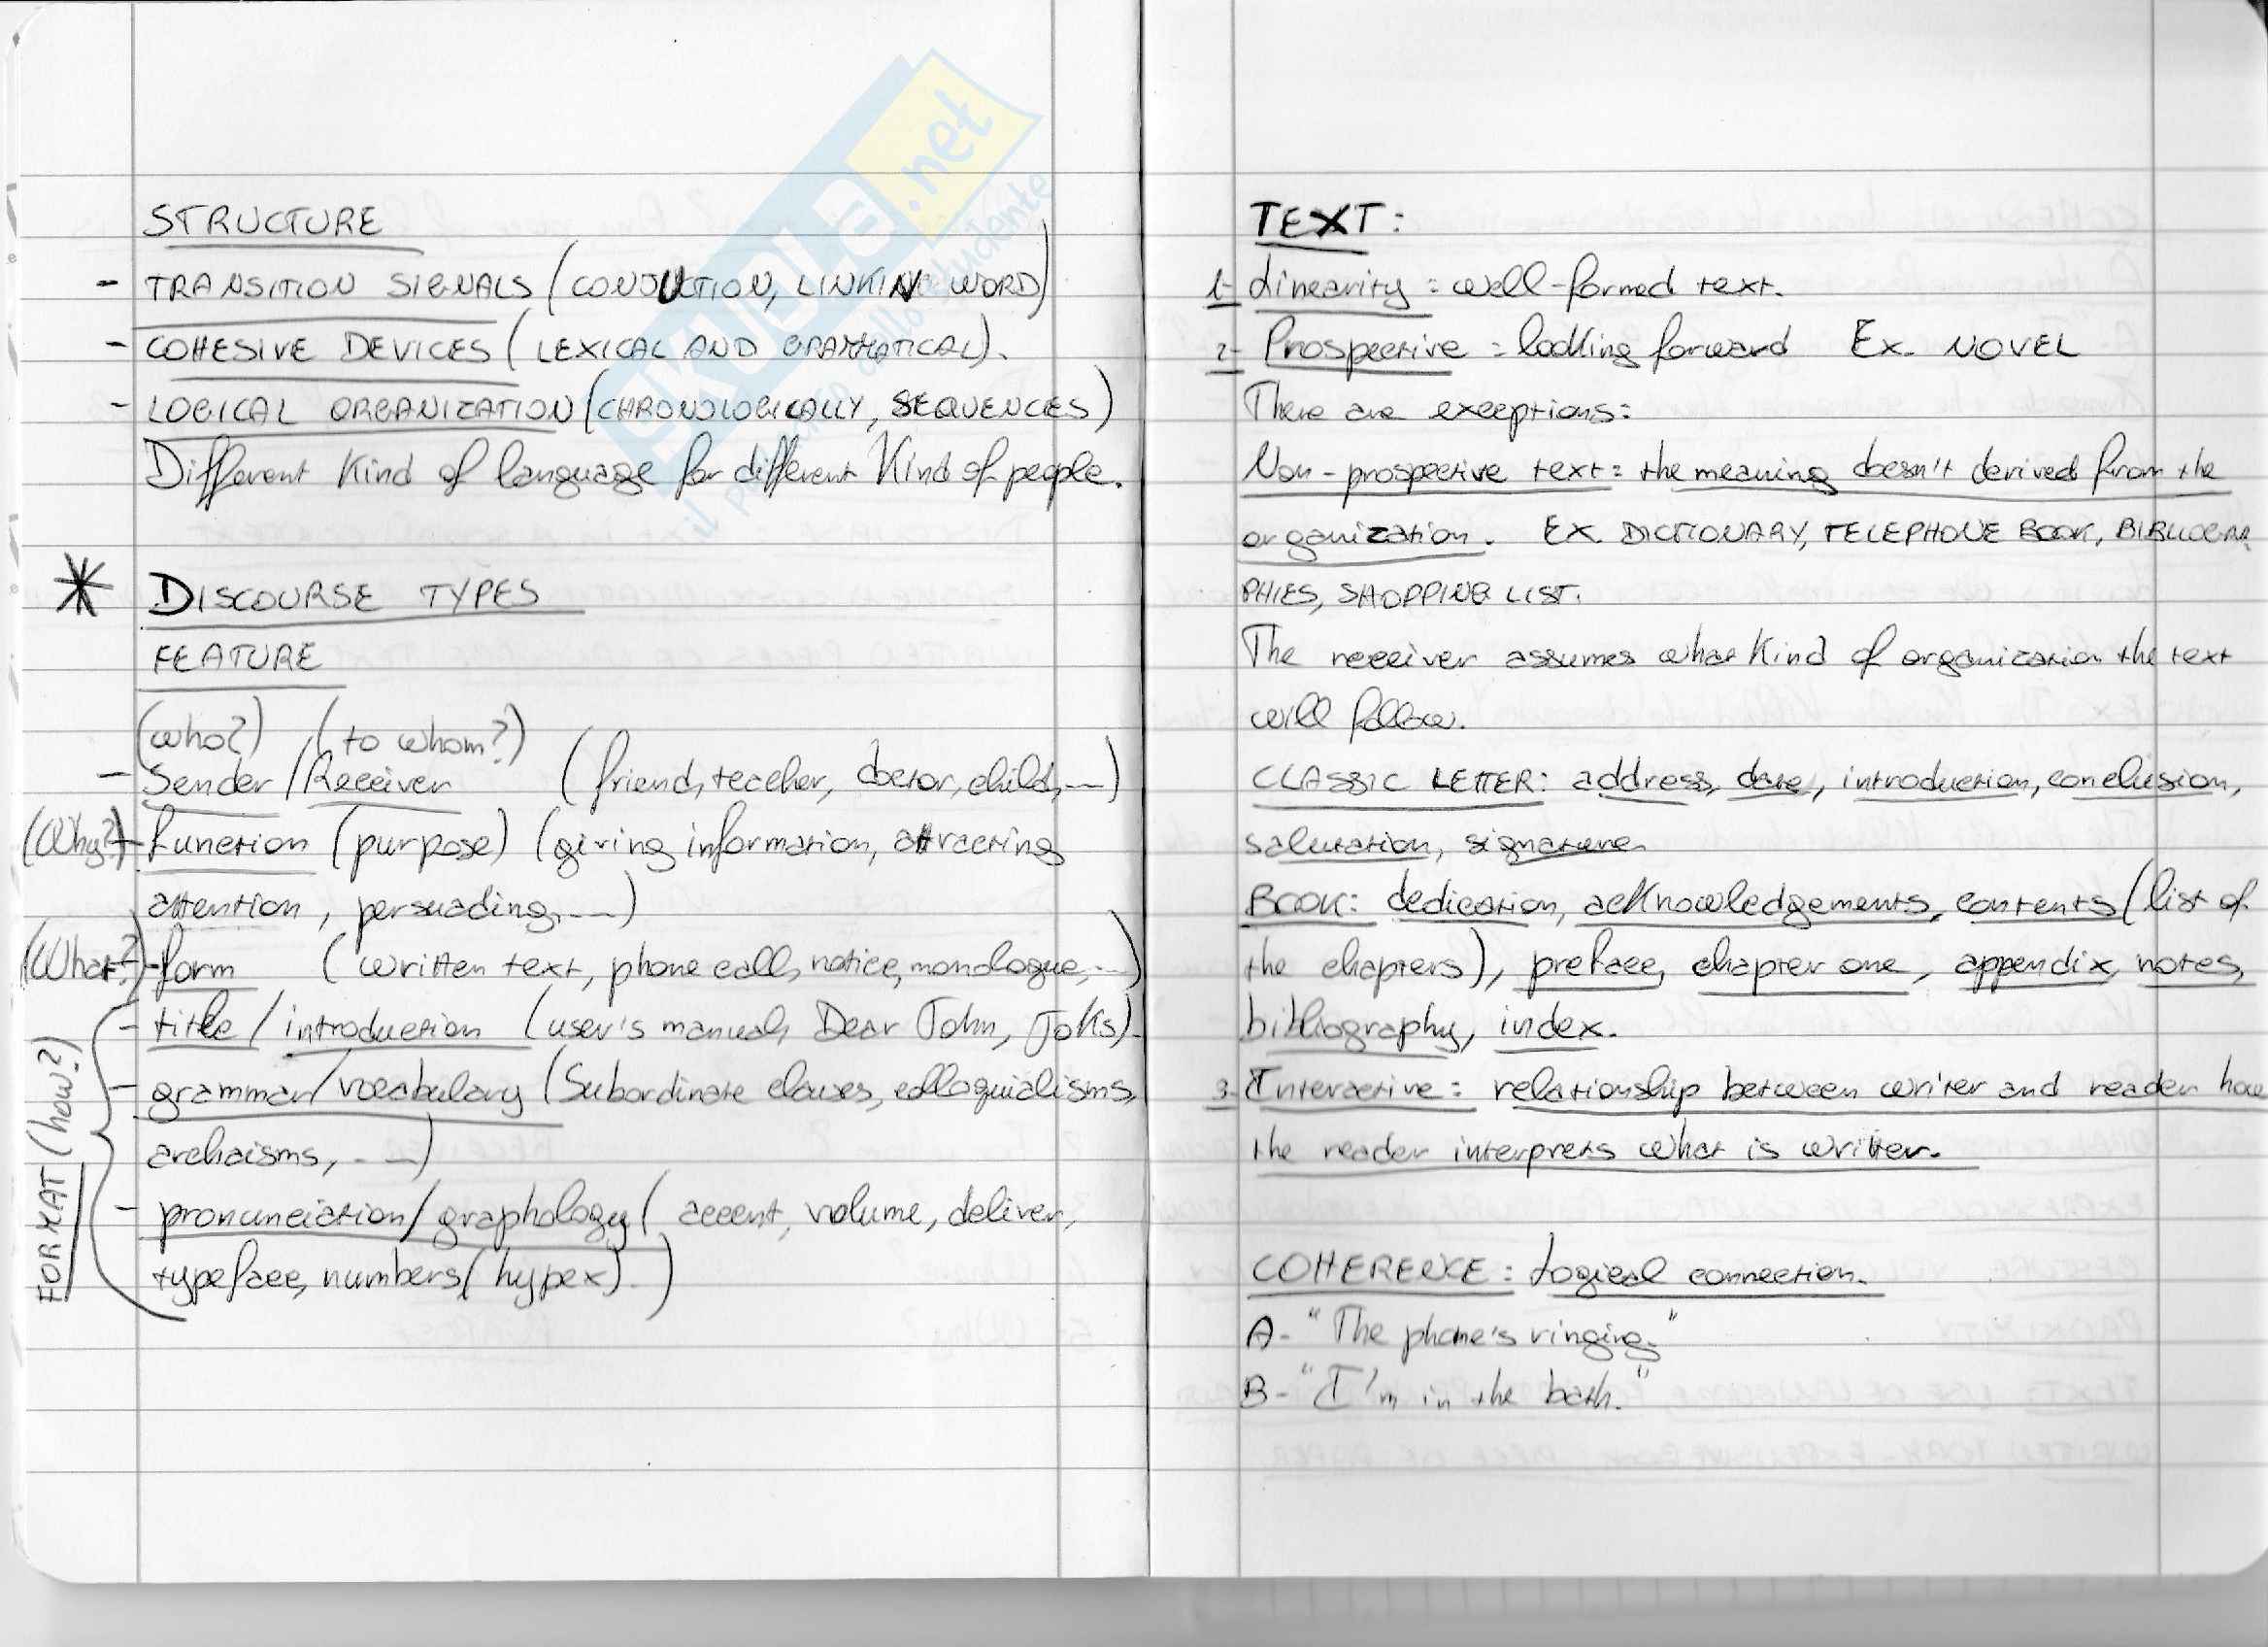 STRUCTURE
- TRANSITION SIGNALS (CONJUCTION, LINKIN WORD)
- COHESIVE DEVICES (LEXICAL AND GRAMMATICAL).
- LOGICAL ORGANIZATION (CHRONOLOGICALLY, SEQUENCES)
Different Kind of language for different Kind of people.
* DISCOURSE TYPES
FEATURE
(who?) (to whom?)
- Sender/Receiver (friend, teacher, doctor, child, ...)
(Why?) - function (purpose) (giving information, attracting
attention, persuading, ...)
(What?) - form (written text, phone call, notice, monologue, ...)
FORMAT (how?)
- title/introduction (user's manual, Dear John, Joks).
- grammar/vocabulary (Subordinate clauses, colloquialisms,
archaisms, ...)
- pronunciation/graphology (accent, volume, deliver,
typeface, numbers (hypex).)
TEXT:
1- Linearity = well-formed text.
2- Prospective = looking forward Ex. NOVEL
There are exceptions:
Non-prospective text: the meaning doesn't derived from the
organization. EX. DICTIONARY, TELEPHONE BOOK, BIBLIOGRA
PHIES, SHOPPING LIST.
The receiver assumes what Kind of organization the text
will follow.
CLASSIC LETTER: address, date, introduction, conclusion,
salutation, signature.
BOOK: dedication, acknowledgements, contents (list of
the chapters), preface, chapter one, appendix, notes,
bibliography, index.
3- Interactive: relationship between writer and reader how
the reader interprets what is written.
COHERENCE: Logical connection.
A- "The phone's ringing."
B- "I'm in the bath."
SKUOLA.net